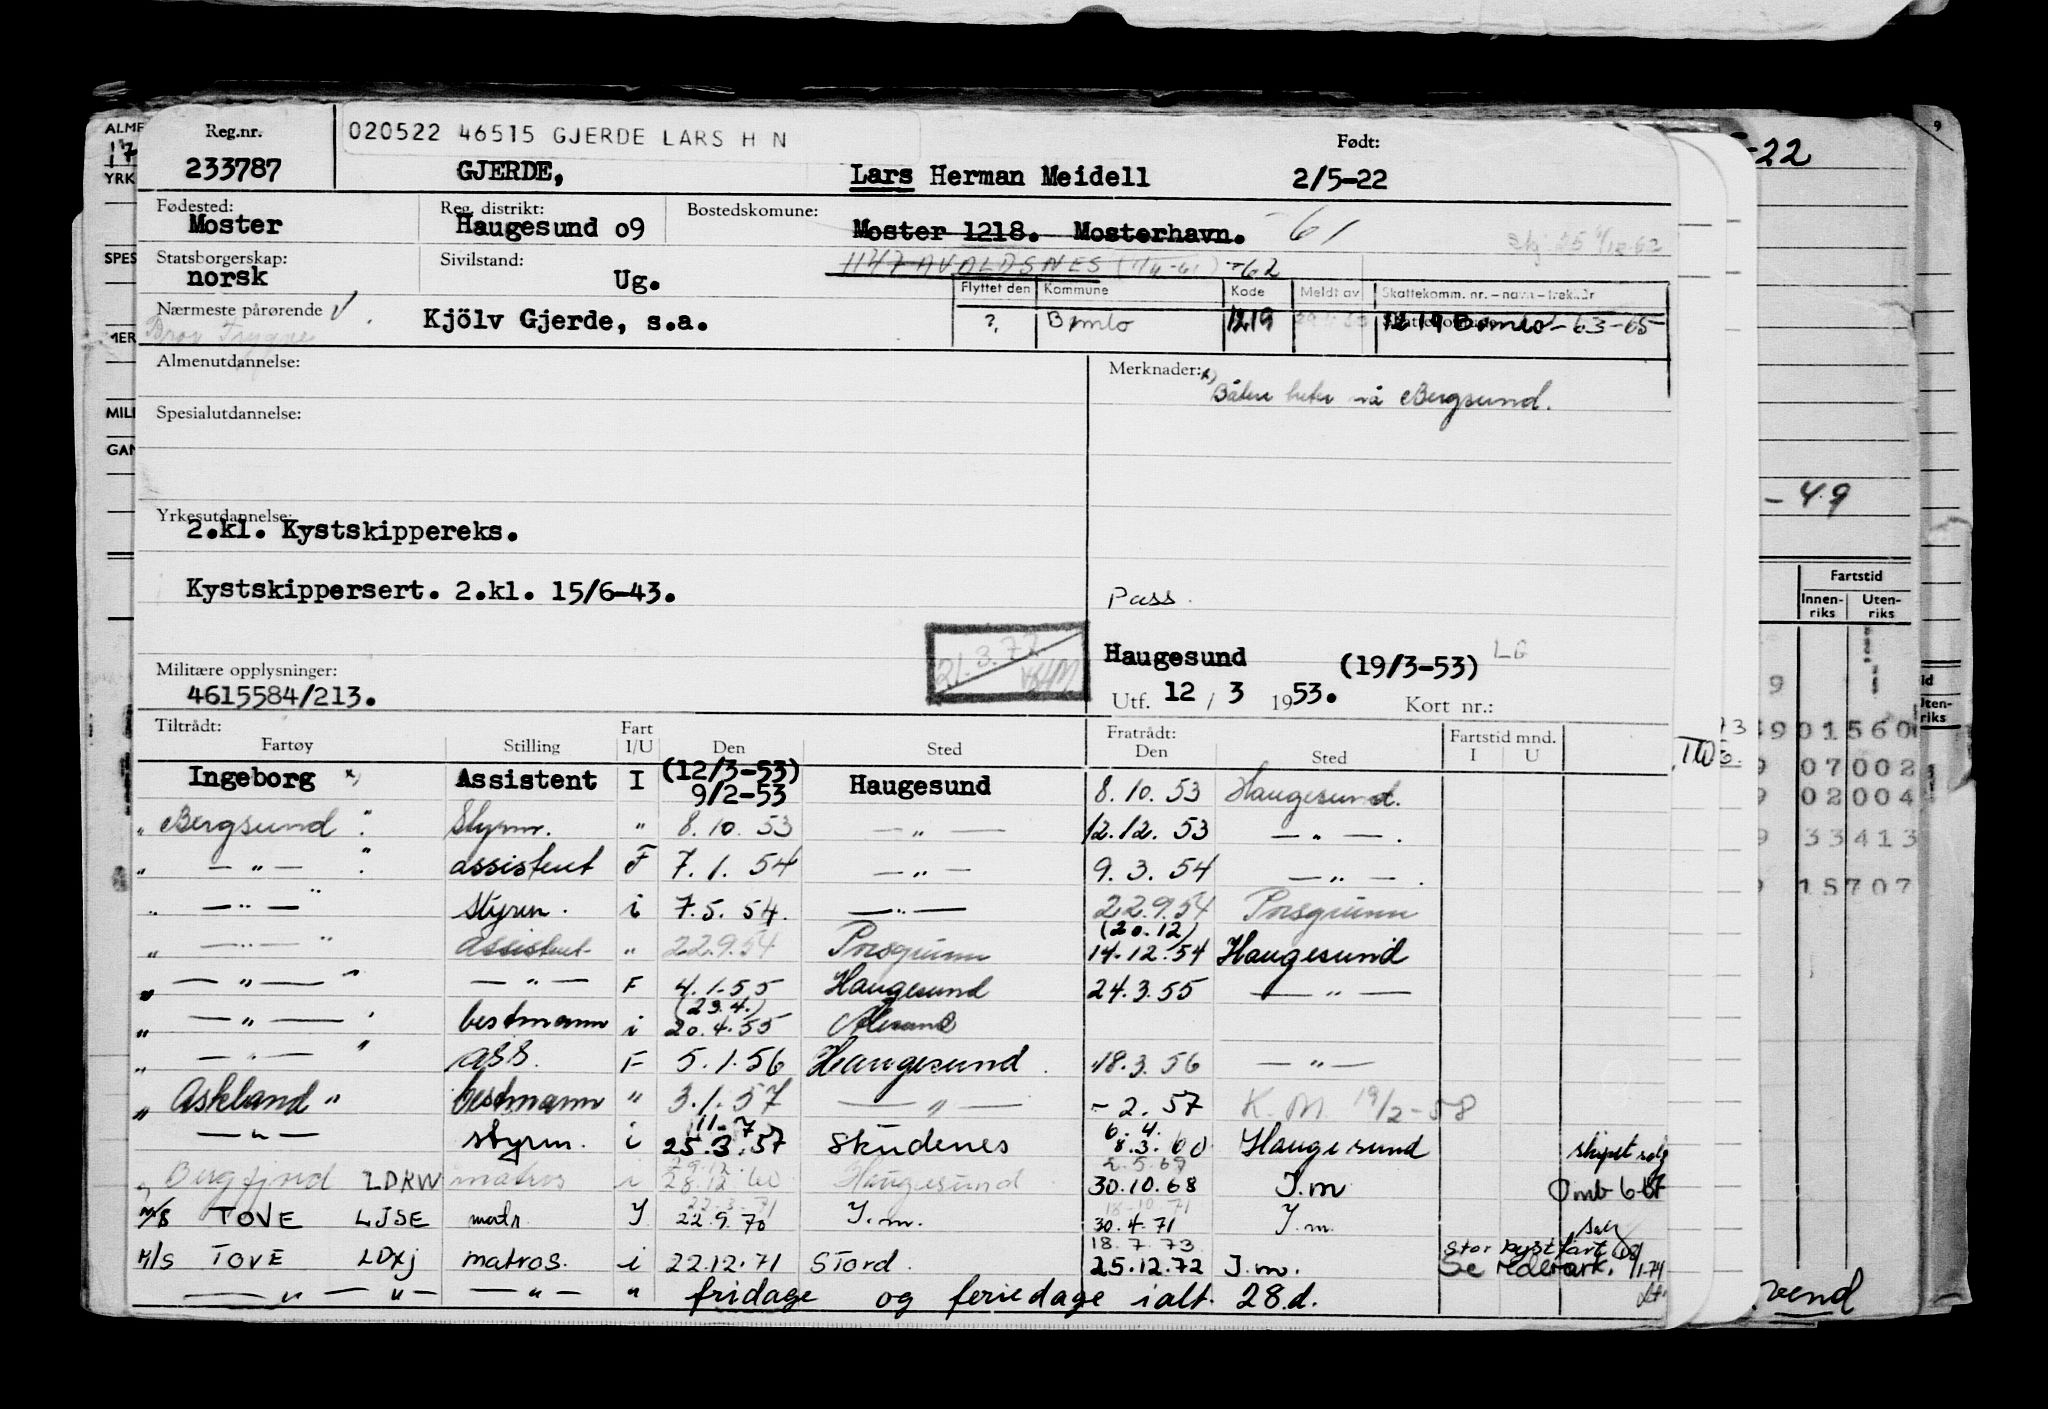 Reg.nr. 020522 46515 GJERDE LARS H N Født:
233787 GJERDE, Lars Herman Meidell 2/5-22
Fødested: Reg. distrikt: Bostedskomune:
Moster Haugesund 09 Moster 1218. Mosterhavn. -61
Statsborgerskap: Sivilstand: 1147 AVALDSNES -62
norsk Ug.
Flyttet den Kommune Kode Meldt av Skattekomm. nr. – navn – trekkår
Nærmeste pårørende Kjölv Gjerde, s.a. ?, Bømlo 1219 1219 Bømlo - 63-65
Bror Trygve
Almenutdannelse: Merknader: x)
Båten heter nå Bergsund.
Spesialutdannelse:
Yrkesutdannelse:
2.kl. Kystskippereks.
Kystskippersert. 2.kl. 15/6-43. Pass.
21.3.72
Haugesund (19/3-53) LG
Militære opplysninger:
4615584/213. Utf. 12 / 3 1953. Kort nr.:
Tiltrådt: Fart Fratrådt: Fartstid mnd.
Fartøy Stilling I/U Den Sted Den Sted I U
Ingeborg x) Assistent I (12/3-53) 9/2-53 Haugesund 8.10.53 Haugesund.
" Bergsund " Styrm. " 8.10.53 — " — 12.12.53 — " — .
" — " — " assistent F 7.1.54 — " — 9.3.54 — " — .
" — " — " Styrm. i 7.5.54. — " — 22.9.54 Porsgrunn
" — " — " assistent " 22.9.54 Porsgrunn (20.12) 14.12.54 Haugesund
" — " — " — " — F 4.1.55 Haugesund 24.3.55 — " —
" — " — " bestmann i (23.4.) 20.4.55
" — " — " ass. F 5.1.56 Haugesund. 18.3.56 — " —
" Askland " bestmann " 3.1.57 — " — - 2.57 K.M. 19/2-58
— " — styrm. i 11-7 25.3.57 Skudenes 6.4. 8.3.60 Haugesund skipet solgt
" Bergfjord LDKW matros i 29.12. 28.12.60 Haugesund 2.5.67 30.10.68 I.m Omb 6-67
M/S TOVE LJSE matr. I 22.3.71 22.9.70 I.m. 18-10-71 30.4.71 I.m.
M/S TOVE LDXJ matros. i 22.12.71 Stord. 18.7.73 25.12.72 I.m. Stor kystfart Se rederark. 1/1-74
— " — " — — " — " fridage og feriedage ialt. 28.d.
-22
-49
Fartstid
Innenriks Utenriks
901560
07002
02004
33413
15707
vend